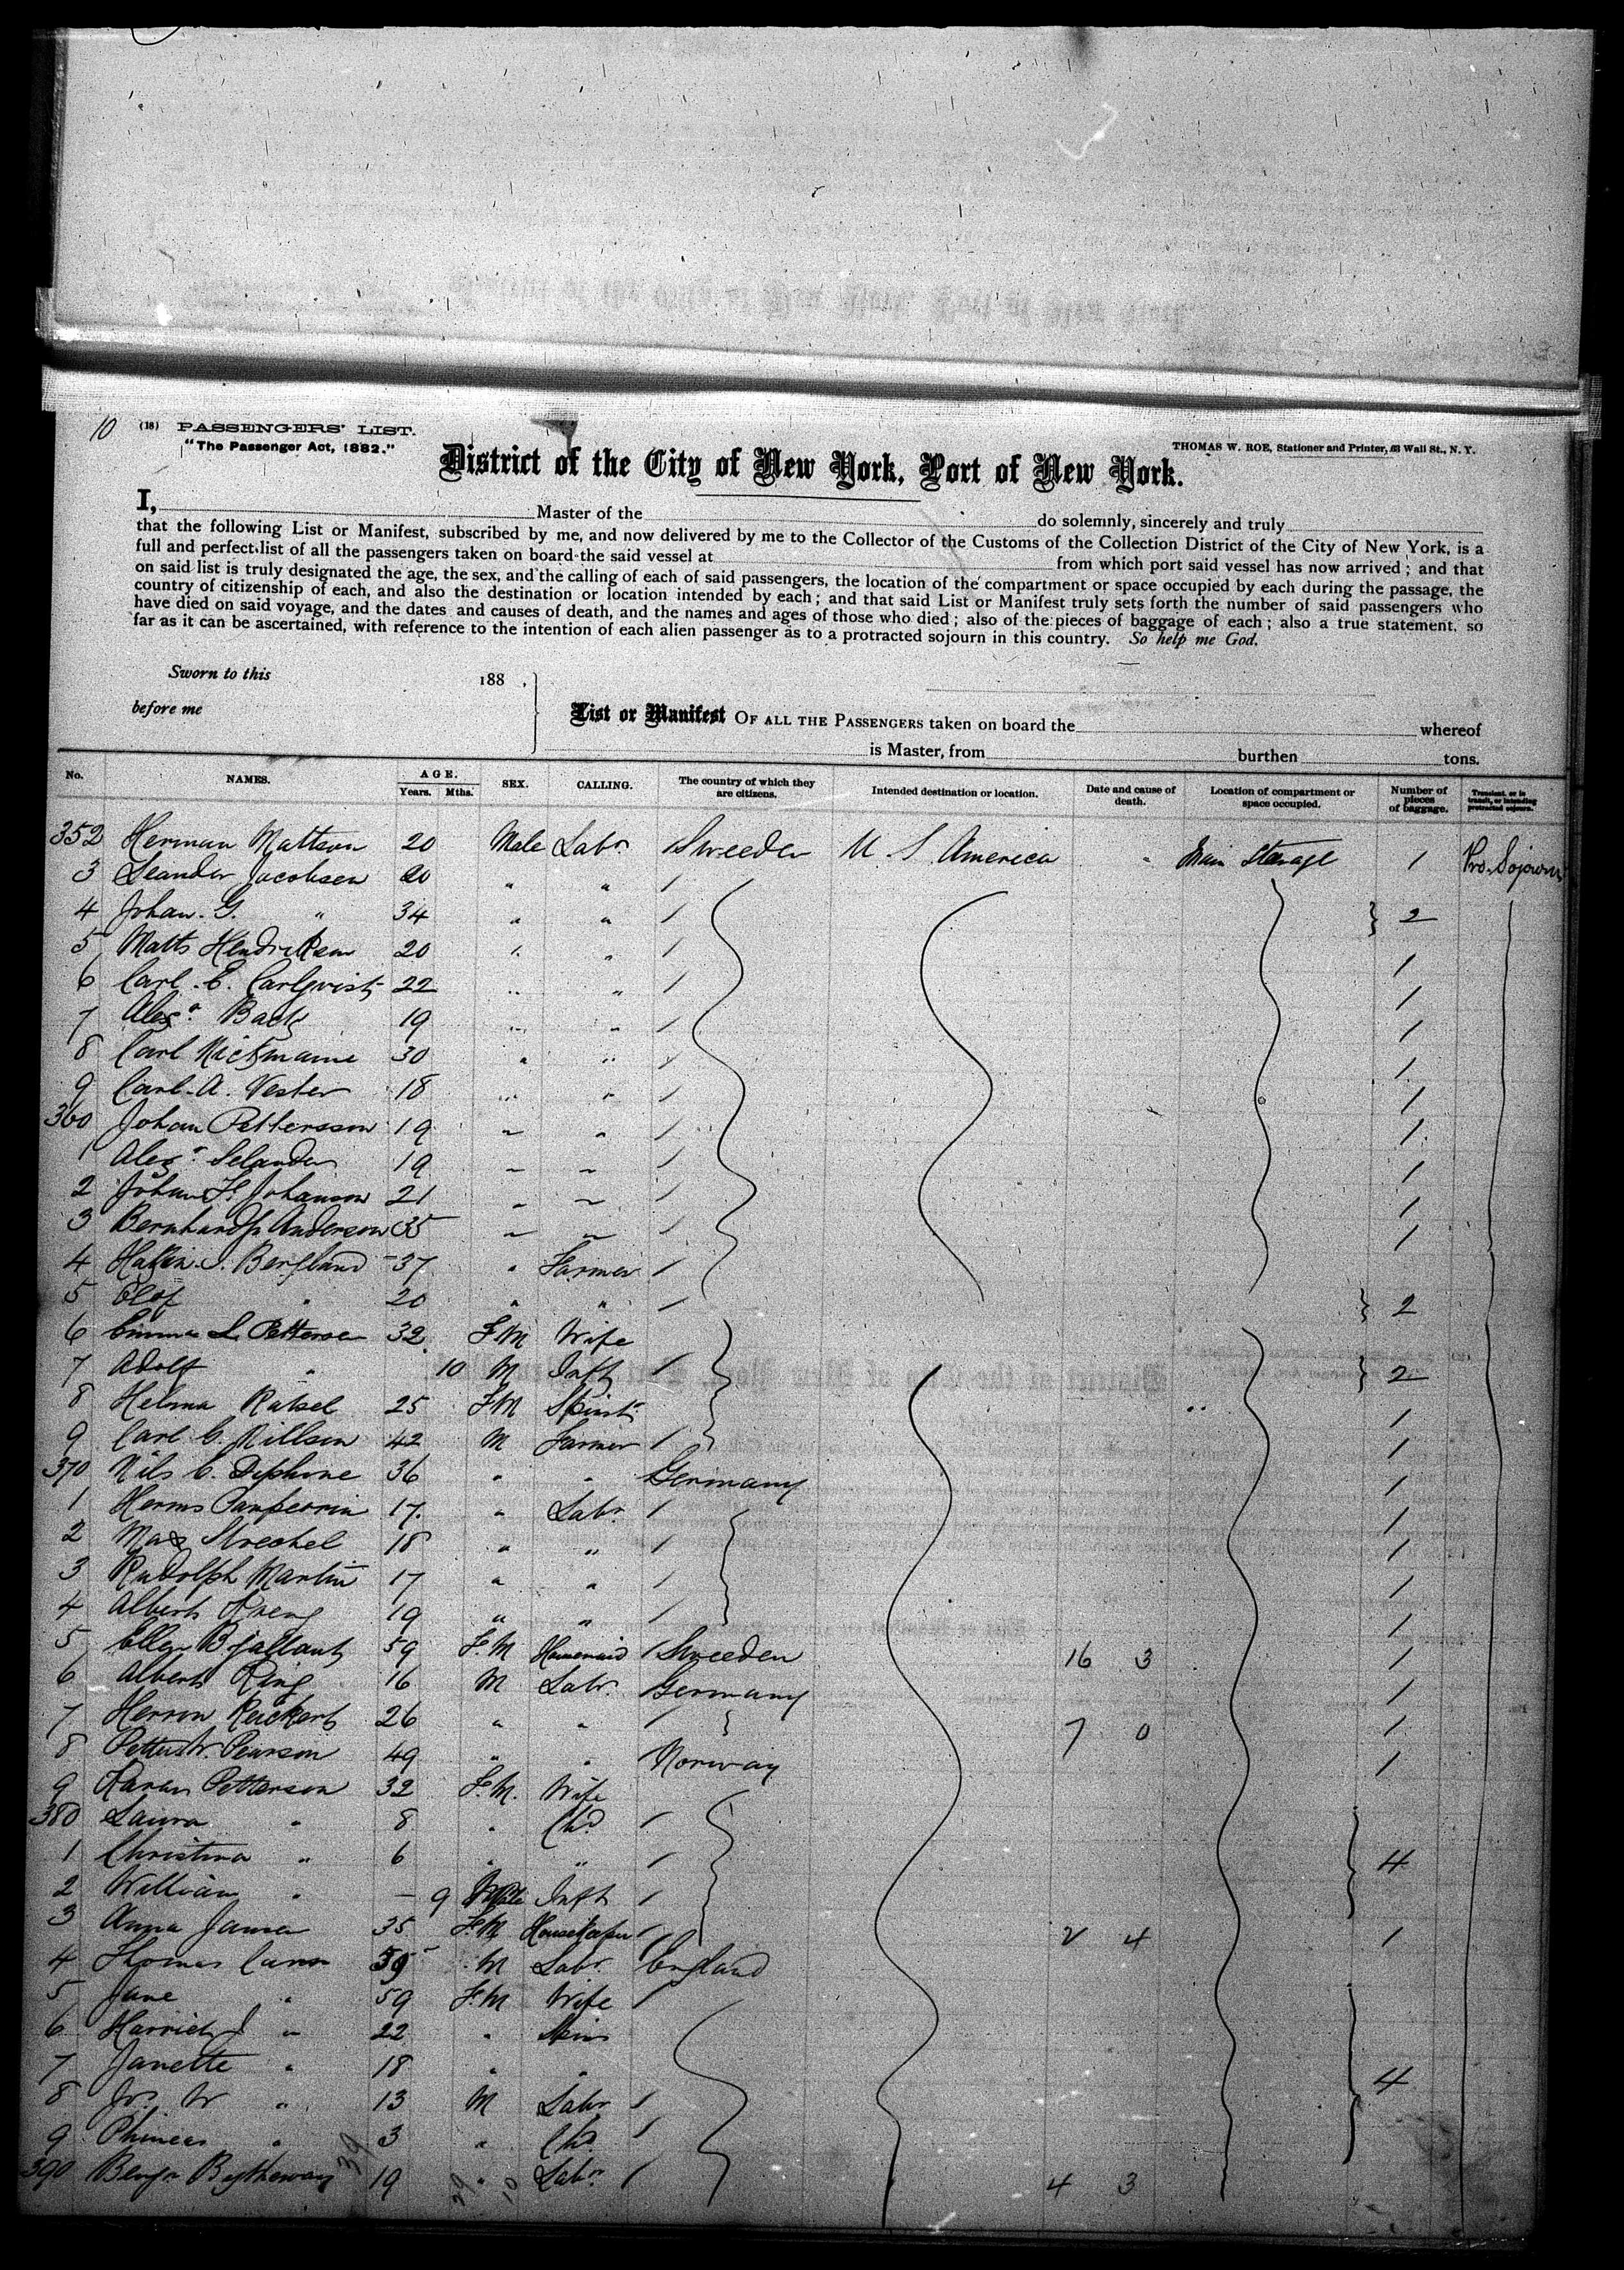 10 (18) PASSENGERS' LIST.
"The Passenger Act, 1882."
THOMAS W. ROE, Stationer and Printer, 63 Wall St., N. Y.
District of the City of New York, Port of New York.
I, Master of the do solemnly, sincerely and truly
that the following List or Manifest, subscribed by me, and now delivered by me to the Collector of the Customs of the Collection District of the City of New York, is a
full and perfect list of all the passengers taken on board the said vessel at from which port said vessel has now arrived; and that
on said list is truly designated the age, the sex, and the calling of each of said passengers, the location of the compartment or space occupied by each during the passage, the
country of citizenship of each, and also the destination or location intended by each; and that said List or Manifest truly sets forth the number of said passengers who
have died on said voyage, and the dates and causes of death, and the names and ages of those who died; also of the pieces of baggage of each; also a true statement, so
far as it can be ascertained, with reference to the intention of each alien passenger as to a protracted sojourn in this country. So help me God.
Sworn to this 188 ,
before me
List or Manifest OF ALL THE PASSENGERS taken on board the whereof
is Master, from burthen tons.
No. NAMES. AGE. Years. Mths. SEX. CALLING. The country of which they are citizens. Intended destination or location. Date and cause of death. Location of compartment or space occupied. Number of pieces of baggage. Transient, or in transit, or intending protracted sojourn.
352 Herman Mattson 20 Male Labr Sweeden U S America " Main Steerage 1 Pro. Sojourn
3 Leander Jacobsen 20 " " /
4 Johan. G. " 34 " " / } 2
5 Matts Hendricksen 20 " " / 1
6 Carl. E. Carlqvist 22 " " / 1
7 Alexr Back 19 " " / 1
8 Carl 30 " " / 1
9 Carl. A. Vester 18 " " / 1
360 Johan Pettersson 19 " " / 1
1 Alexr Selander 19 " " / 1
2 Johan Johanson 21 " " / 1
3 Anderson 35 " " / 1
4 Bergland 37 " Farmer /
5 Olof " 20 " " / } 2
6 Emma L. 32 F.M Wife
7 Adolf " 10 M Inft / } 2
8 Helma 25 F.M Spinst 1
9 Carl C. Nillsen 42 M Farmer / 1
370 Nils C. 36 " " Germany 1
1 17 " Labr / 1
2 Max 18 " " / 1
3 Rudolph Martin 17 " " / 1
4 Albert 19 " " / 1
5 Ellen 59 F.M Housemaid / Sweeden 16 3 1
6 Albert Ring 16 M Labr Germany 1
7 Reickert 26 " " / 7 0 1
8 Pearson 49 " " Norway 1
9 Karan Petterson 32 F.M. Wife
380 Laura " 8 " Chd /
1 Christina " 6 " " / } 4
2 William " - 9 Male Inft /
3 Anna 35 F.M Housekeeper / 2 4 1
4 Thomas 59 M Labr England
5 Jane " 59 F.M Wife /
6 Harriet J " 22 " Spin
7 Janette " 18 " " } 4
8 Jos. W " 13 M Labr /
9 Phineas " 3 " Chd /
390 Benjn Bytheway 19 " Labr / 4 3
39 29 10